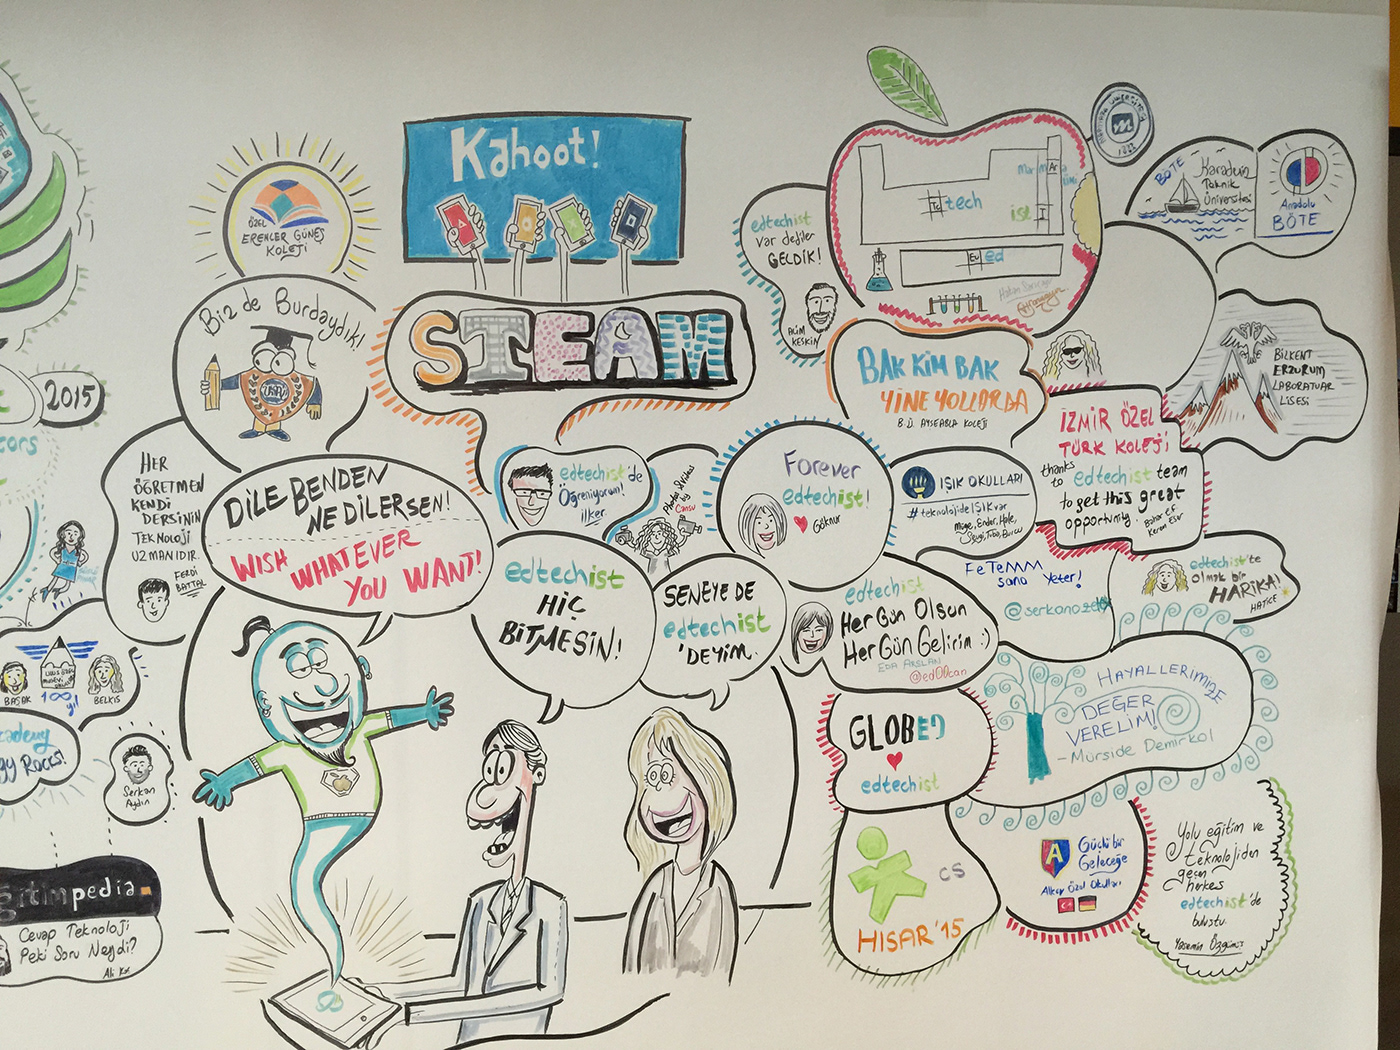 Kahoot!
ÖZEL
ERENLER GÜNEŞ
KOLEJİ
Biz de Burdaydık!
STEAM
2015
HER
ÖĞRETMEN
KENDİ
DERSİNİN
TEKNOLOJİ
UZMANIDIR.
FERDİ
BATTAL
DİLE BENDEN
NE DİLERSEN!
WISH WHATEVER
YOU WANT!
edtechist'de
Öğreniyorum!
ilker.
Photos & Video
by
Cansu
edtechist
HİÇ
BİTMESİN!
SENEYE DE
edtechist
'DEYİM.
Forever
edtechist!
Göknur
edtechist
var dediler
GELDİK!
ALİM
KESKİN
tech
ist
ed
1883
BAK KİM BAK
YİNE YOLLARDA
B.D. AYŞEABLA KOLEJİ
BÖTE
Karadeniz
Teknik
Üniversitesi
Anadolu
BÖTE
BİLKENT
ERZURUM
LABORATUAR
LİSESİ
İZMİR ÖZEL
TÜRK KOLEJİ
thanks
to edtechist team
to get this great
opportunity.
IŞIK OKULLARI
#teknolojideIŞIKvar
Müge, Ender, Hale,
Sevgi, Tuba, Burcu
FeTeMM
sana yeter!
@serkanozel
edtechist'te
olmak bir
HARİKA!
HATİCE
edtechist
Her Gün Olsun
Her Gün Gelirim :)
EDA ARSLAN
GLOBED
edtechist
HAYALLERİMİZE
DEĞER
VERELİM!
- Mürside Demirkol
CS
HISAR '15
A
Güçlü bir
Geleceğe
Alkev Özel Okulları
Yolu eğitim ve
teknolojiden
geçen
herkes
edtechist'de
buluştu.
Yasemin Özgümüş
BAŞAK
100 yıl
BELKIS
Serkan
Aydın
ğitimpedia
Cevap Teknoloji
Peki Soru Neydi?
Ali Koç